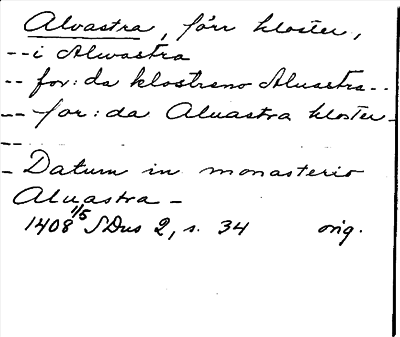 Alvastra, förr kloster,
--i Alwastra
-- for: da klostreno Aluastra--
-- for: da Aluastra kloster-
--
- Datum in monasterio
Aluastra -
1408 1/5 SDns 2, s. 34 orig.